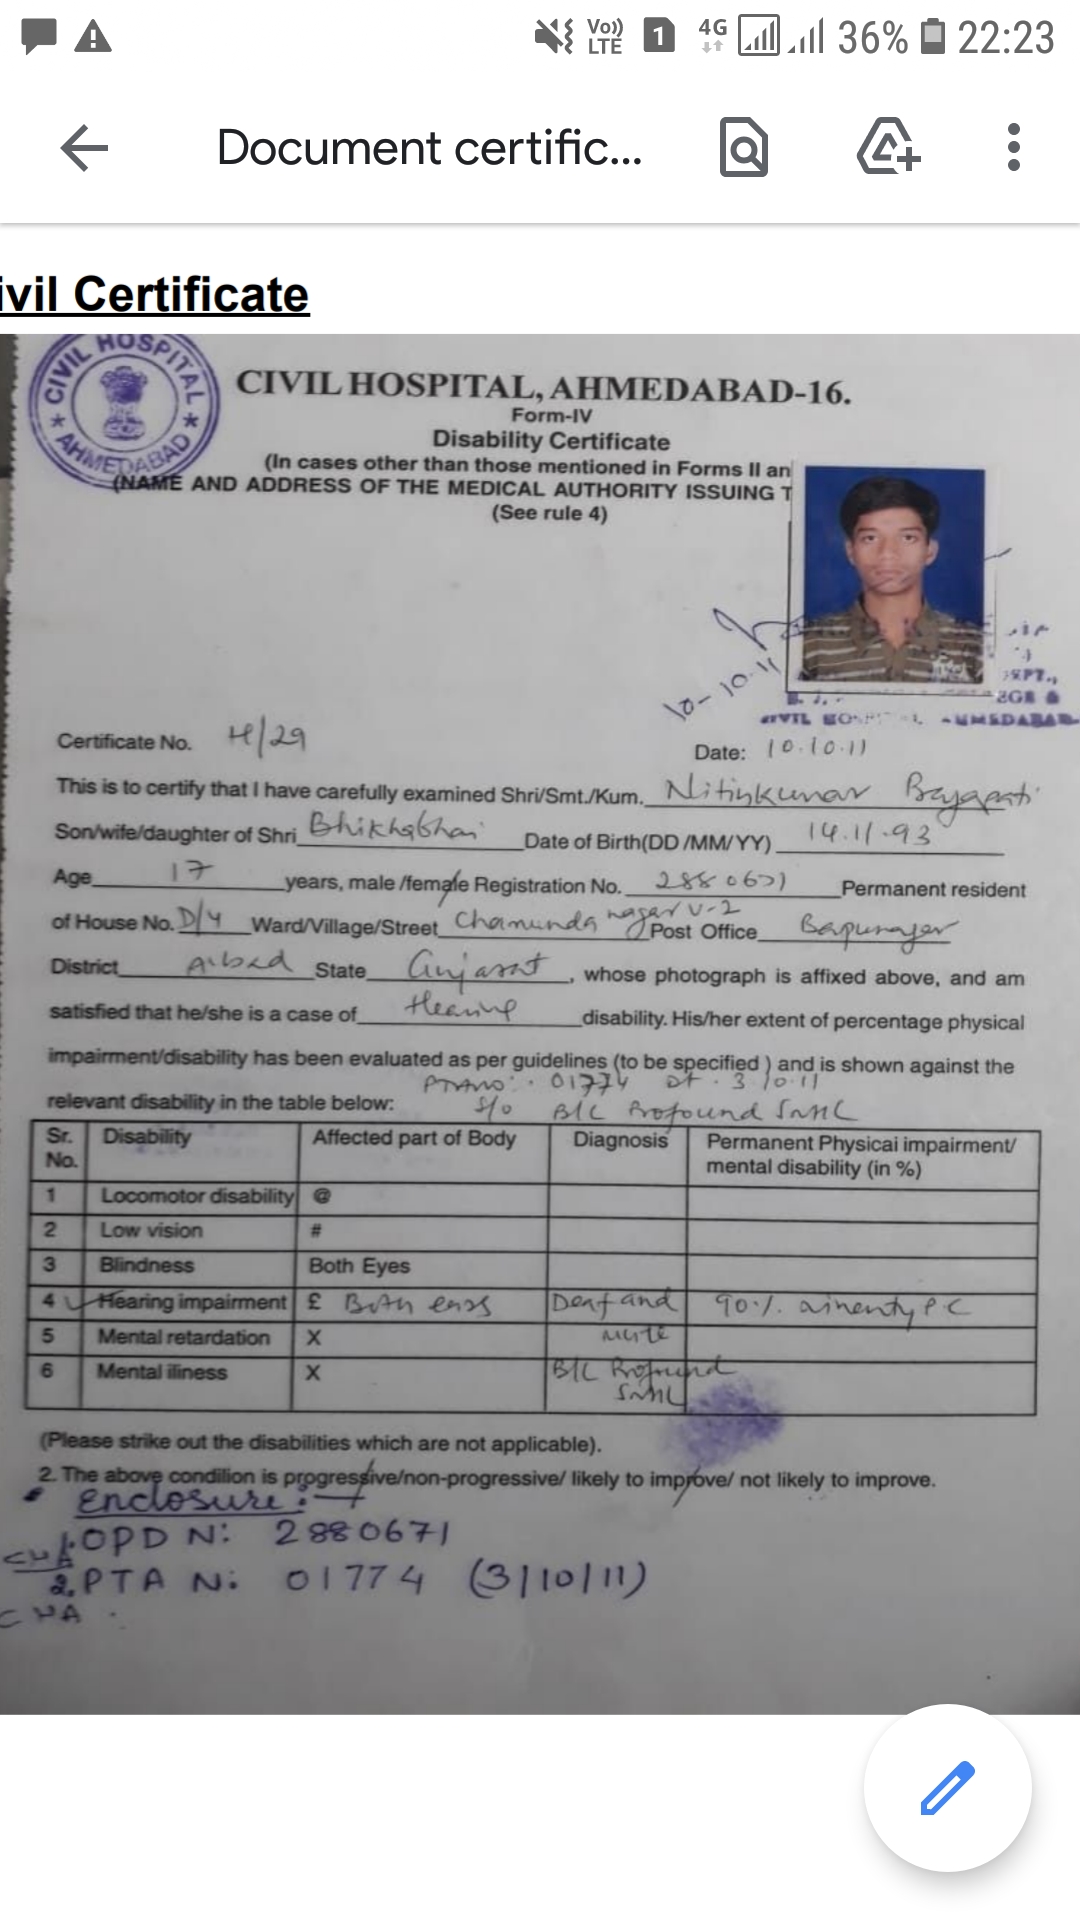 Vo)) LTE 1 4G 36% 22:23
Document certific...
ivil Certificate
CIVIL HOSPITAL AHMEDABAD
CIVIL HOSPITAL, AHMEDABAD-16.
Form-IV
Disability Certificate
(In cases other than those mentioned in Forms II an
(NAME AND ADDRESS OF THE MEDICAL AUTHORITY ISSUING T
(See rule 4)
10-10.11
Certificate No. H/29
Date: 10.10.11
This is to certify that I have carefully examined Shri/Smt./Kum. Nitinkumar
Son/wife/daughter of Shri Bhikhabhai Date of Birth(DD/MM/YY) 14.11.93
Age 17 years, male /female Registration No. 2880671 Permanent resident
of House No. D/4 Ward/Village/Street Chamunda nagar V-2 Post Office Bapunagar
District A'bad State Gujarat, whose photograph is affixed above, and am
satisfied that he/she is a case of Hearing disability. His/her extent of percentage physical
impairment/disability has been evaluated as per guidelines (to be specified ) and is shown against the
01774 dt. 3.10.11
relevant disability in the table below: S/o B/L Profound SNHL
Sr. No. Disability Affected part of Body Diagnosis Permanent Physical impairment/ mental disability (in %)
1 Locomotor disability @
2 Low vision #
3 Blindness Both Eyes
4 Hearing impairment £ Both ears Deaf and 90% ninenty P.C
5 Mental retardation X mute
6 Mental illness X B/L Profound SNHL
(Please strike out the disabilities which are not applicable).
2. The above condition is progressive/non-progressive/ likely to improve/ not likely to improve.
Enclosure :-
1. OPD N: 2880671
2. PTA N: 01774 (3/10/11)